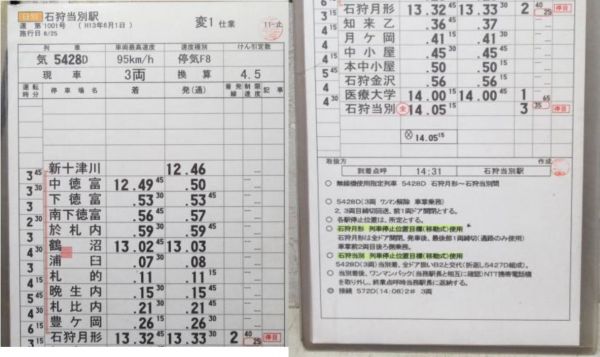 日勤 石狩当別駅 変1 仕業 11-止
達 第 1001号 ( H13年6月1日 )
施行日 6/25
列車 車両最高速度 速度種別 けん引定数
気 5428D 95km/h 停気F8
現車 3両 換算 4.5
運転時分 停車場名 着 発(通) 着発線 制限速度 記事
新十津川 12.46
3 45 中徳富 12.49 45 .50
3 30 下徳富 .53 30 .53 45
南下徳富 .56 45 .57
於札内 .59 30 .59 45
鶴沼 13.02 45 13.03
浦臼 .07 30 .08
札的 .11 .11 15
晩生内 .15 30 .15 45
札比内 .21 30 .21 45
豊ケ岡 .26 15 .26 30
6 15 石狩月形 13.32 45 13.33 30 2 40 25 停目
石狩月形 13.32 13.33 2 40 25 停目
知来乙 .37 .37
月ケ岡 .41 15 .41 30
中小屋 .45 30 .45
本中小屋 .50 .50
石狩金沢 .56 .56
医療大学 14.00 14.00 45 1 65
石狩当別 全 14.05 15 3 35 停目
14.05 15
取扱方 作成
到着点呼 14:31 石狩当別駅
○ 無線機使用指定列車 5428D 石狩月形~石狩当別間
○ 5428D(3両 ワンマン解除 車掌乗務)
2,3両目締切回送、前1両ドア開閉とする。
○ 各駅停止位置は、所定とする。
○ 石狩月形 列車停止位置目標(移動式)使用
石狩月形は全ドア開閉、発車後、最後部1両締切(通路のみ使用)
車掌前2両目後ろ側乗務。
○ 石狩当別 列車停止位置目標(移動式)使用
5428D(3両)当別着、全ドア扱いB2と交代(折返し5427D組成)。
○ 当別着後、ワンマンパック(当務駅長と相互に確認)NTT携帯電話機
を取り外し、終業点呼時当務駅長に返納する。
◎ 接続 572D(14:08)2# 3両